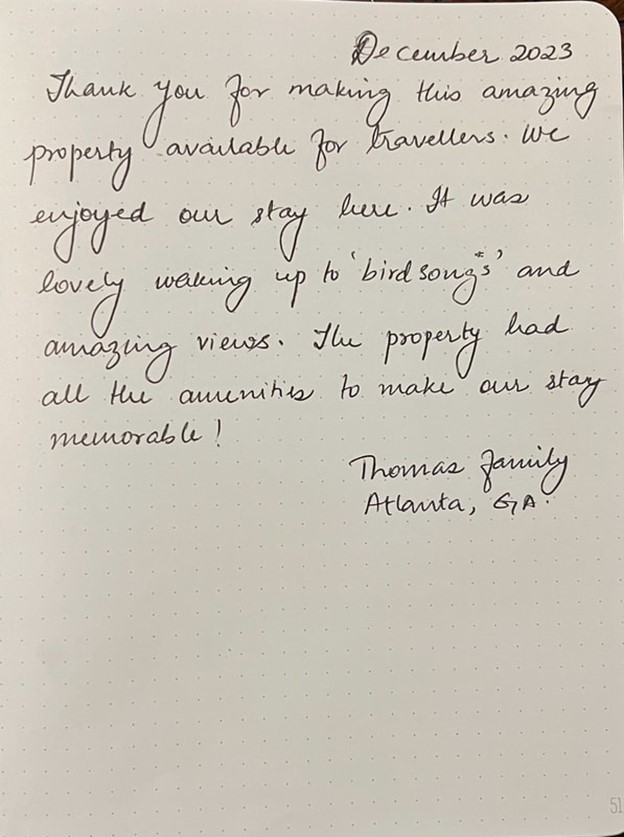 December 2023
Thank you for making this amazing
property available for travellers. We
enjoyed our stay here. It was
lovely waking up to 'birdsongs' and
amazing views. The property had
all the amenities to make our stay
memorable!
Thomas family
Atlanta, GA.
51